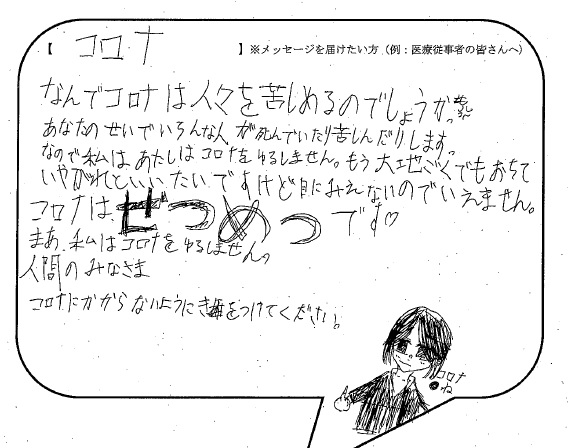 【 コロナ 】※メッセージを届けたい方（例：医療従事者の皆さんへ）
なんでコロナは人々を苦しめるのでしょうか。
あなたのせいでいろんな人が死んでいたり苦しんだりします。
なので私は、あたしはコロナをゆるしません。もう大地ごくでもおちて
いやがれといいたいですけど目にみえないのでいえません。
コロナは、ぜつめつです♡
まあ、私はコロナをゆるしません。
人間のみなさま
コロナにかからないように気をつけてください。
コロナ